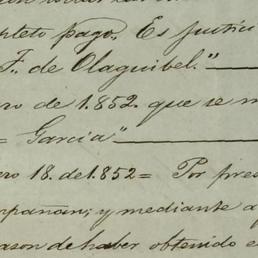 pleto pago. Es justici
F. de Olaguibel."
ro de 1.852. que se m
= Garcia"
ero 18. de 1.852= Por pres
mpañan; y mediante a
rason de haber obtenido e